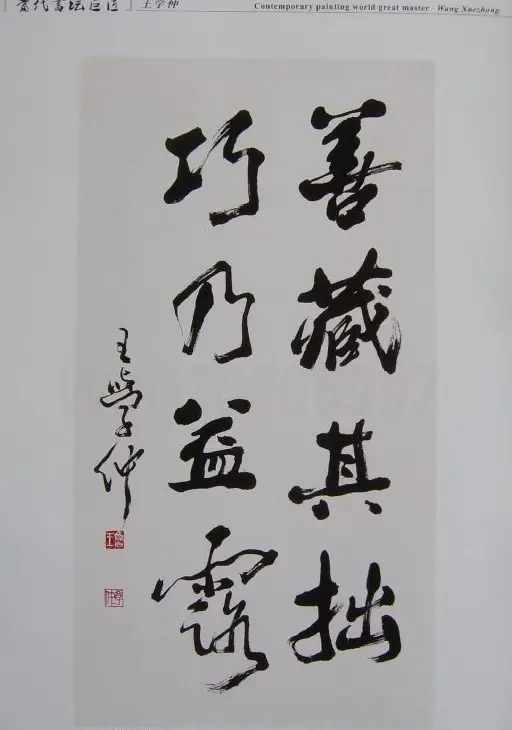 『当代书坛巨匠』王学仲
Contemporary painting world great master · Wang Xuezhong
善藏其拙
巧乃益露
王學仲